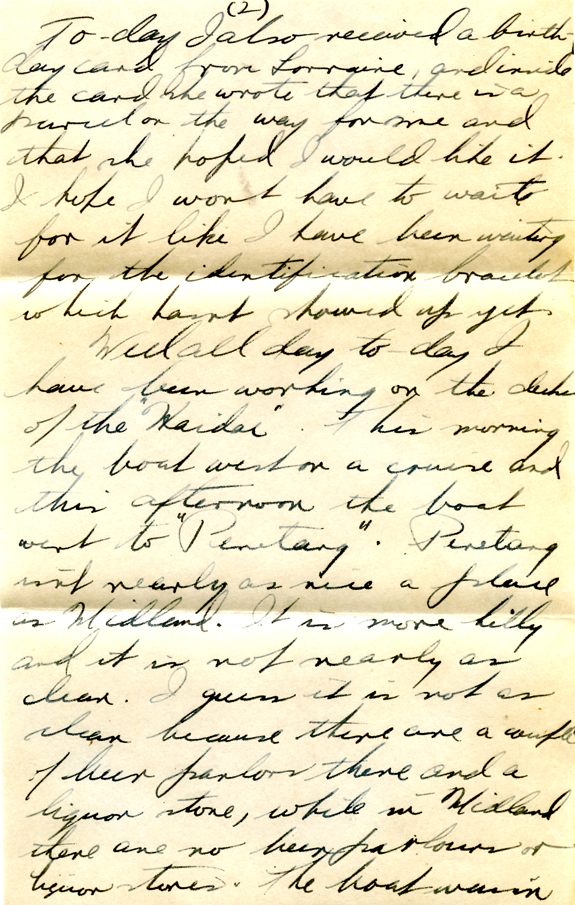 (2)
To-day I also received a birth-
day card from Lorraine, and inside
the card she wrote that there is a
parcel on the way for me and
that she hoped I would like it.
I hope I won't have to waite
for it like I have been waiting
for the identification bracelet
which hasnt showed up yet.
Well all day to-day I
have been working on the decks
of the "Haida". This morning
the boat went on a cruise and
this afternoon the boat
went to "Penetang". Penetang
isnt nearly as nice a place
as Midland. It is more hilly
and it is not nearly as
clean. I guess it is not as
clean because there are a couple
of beer parlors there and a
liquor store, while in Midland
there are no beer parlours or
liquor stores. The boat was in